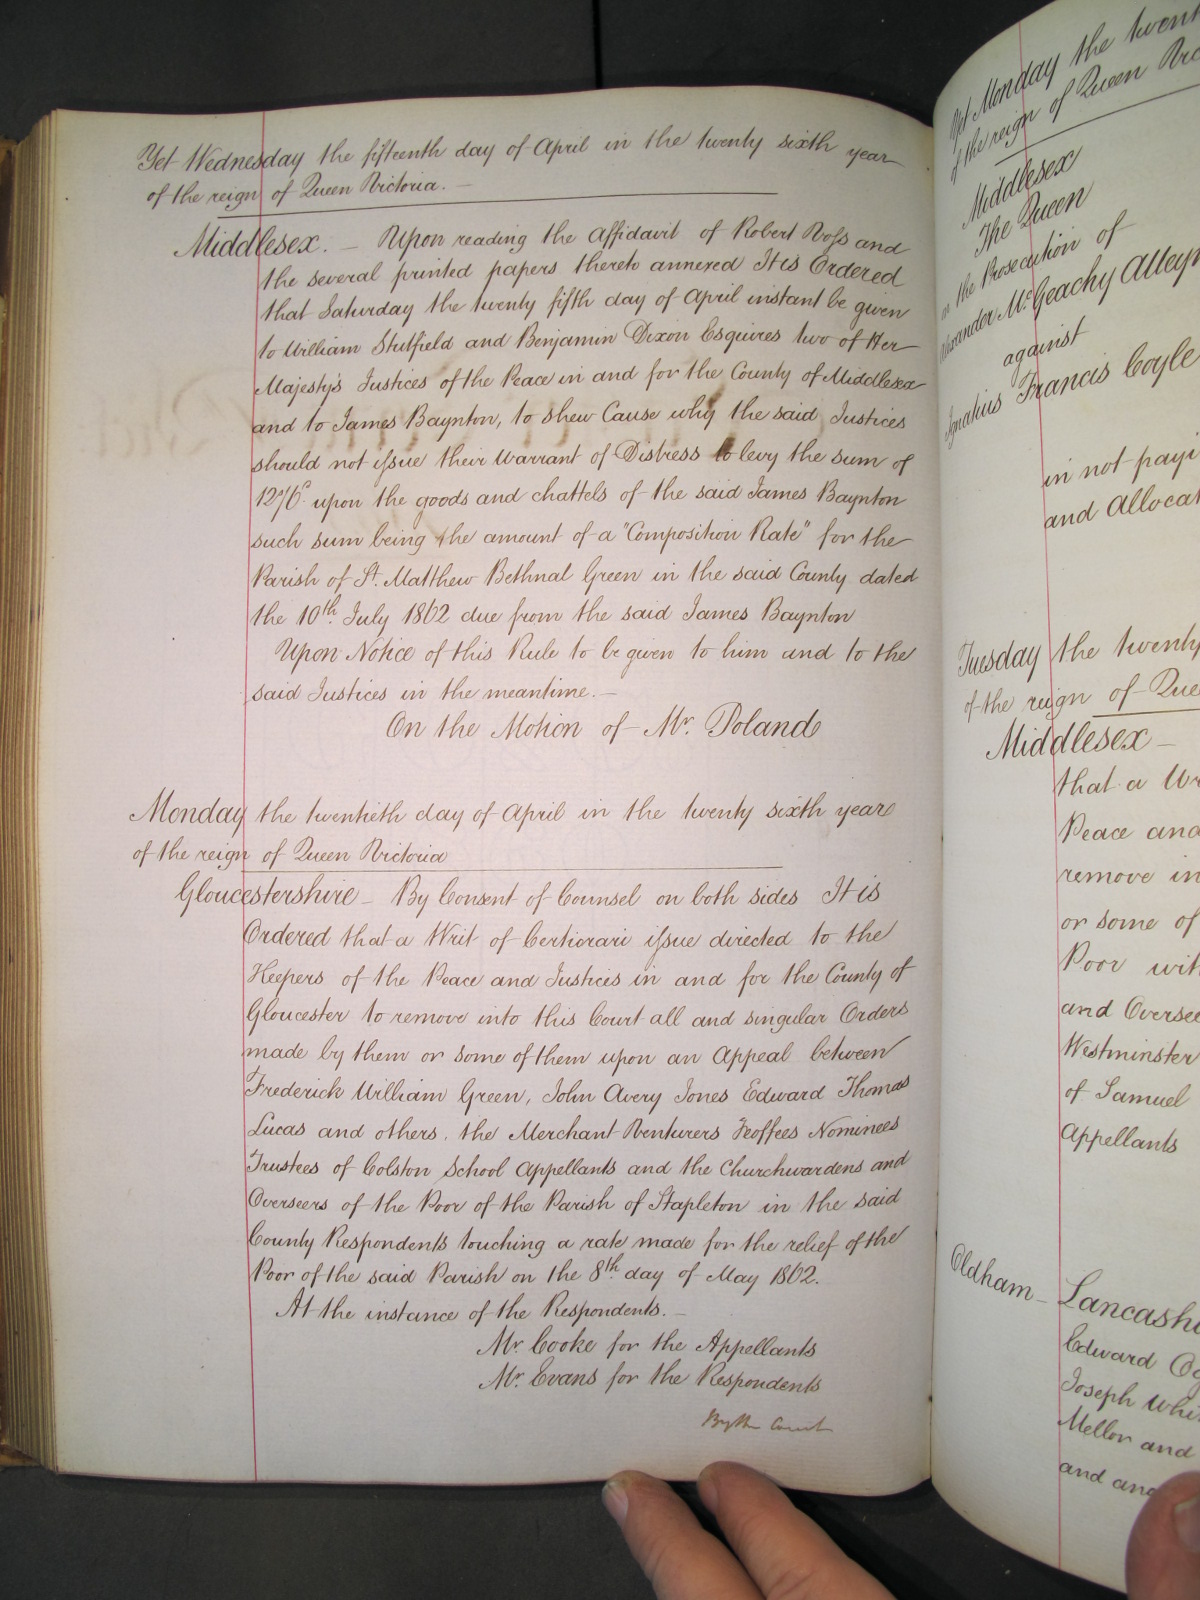 Yet Wednesday the fifteenth day of April in the twenty sixth year
of the reign of Queen Victoria. —
Middlesex. — Upon reading the Affidavit of Robert Ross and
the several printed papers thereto annexed It is Ordered
that Saturday the twenty fifth day of April instant be given
to William Stutfield and Benjamin Dixon Esquires two of Her
Majesty's Justices of the Peace in and for the County of Middlesex
and to James Baynton, to shew Cause why the said Justices
should not issue their Warrant of Distress to levy the sum of
12s/6d upon the goods and chattels of the said James Baynton
such sum being the amount of a "Composition Rate" for the
Parish of St. Matthew Bethnal Green in the said County dated
the 10th July 1862 due from the said James Baynton
Upon Notice of this Rule to be given to him and to the
said Justices in the meantime. —
On the Motion of Mr. Poland
Monday the twentieth day of April in the twenty sixth year
of the reign of Queen Victoria
Gloucestershire — By Consent of Counsel on both sides It is
Ordered that a Writ of Certiorari issue directed to the
Keepers of the Peace and Justices in and for the County of
Gloucester to remove into this Court all and singular Orders
made by them or some of them upon an Appeal between
Frederick William Green, John Avery Jones Edward Thomas
Lucas and others, the Merchant Venturers Feoffees Nominees
Trustees of Colston School Appellants and the Churchwardens and
Overseers of the Poor of the Parish of Stapleton in the said
County Respondents touching a rate made for the relief of the
Poor of the said Parish on the 8th day of May 1862.
At the instance of the Respondents. —
Mr. Cooke for the Appellants
Mr. Evans for the Respondents
By the Court
Yet Monday the twent
of the reign of Queen Vic
Middlesex
The Queen
on the Prosecution of
Alexander McGeachy Alleyn
against
Ignatius Francis Coyle
in not payi
and Allocat
Tuesday the twenty
of the reign of Quee
Middlesex —
that a Wr
Peace and
remove in
or some of
Poor wit
and Oversee
Westminster
of Samuel
Appellants
Oldham — Lancashi
Edward
Joseph Whi
Mellor and
and